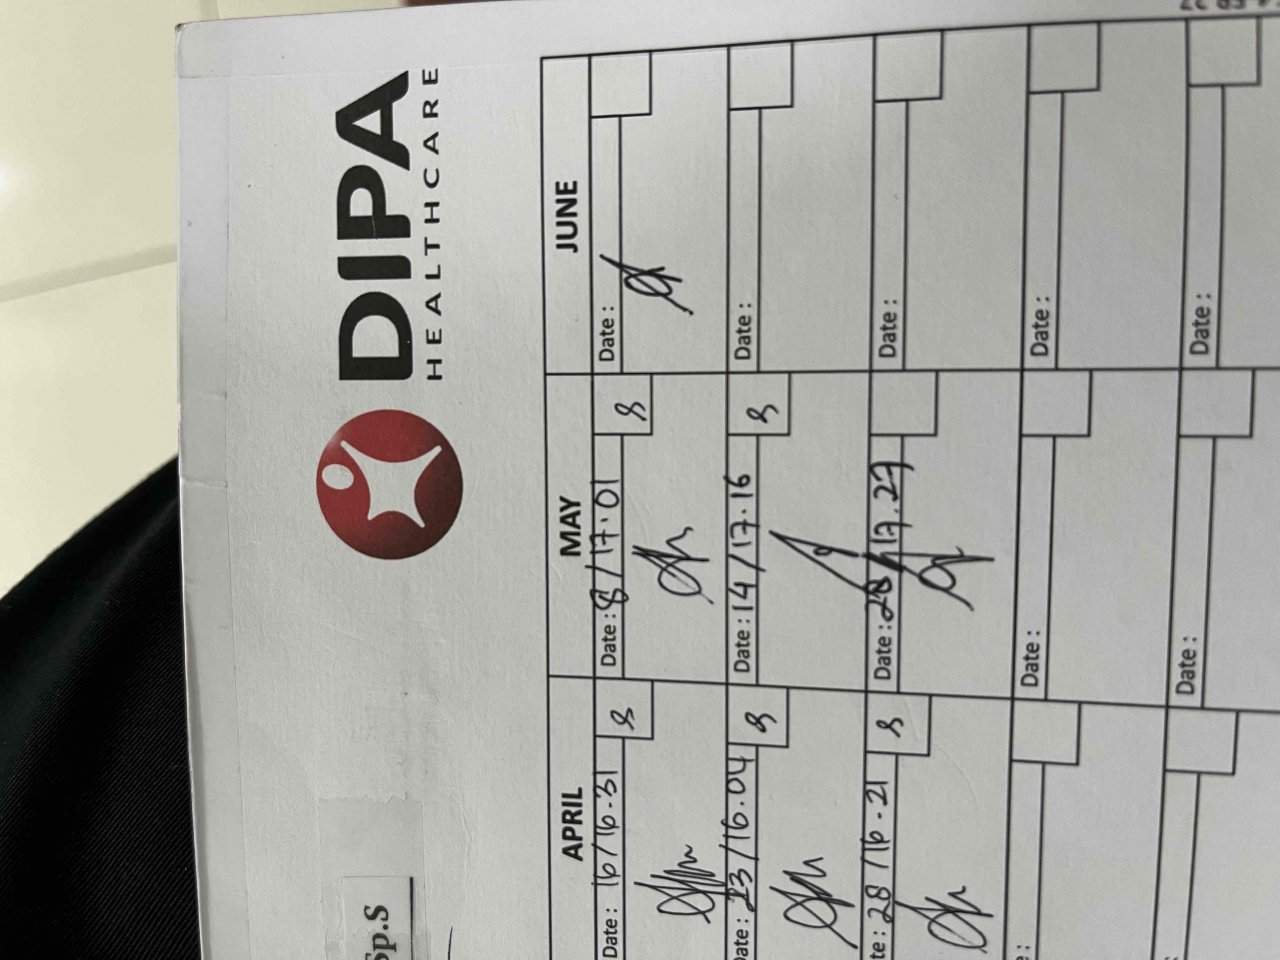 DIPA
HEALTHCARE
Sp.S
APRIL MAY JUNE
Date : 16/16.31 8 Date : 8/17.01 8 Date :
ate : 23/16.04 8 Date : 14/17.16 8 Date :
te : 28/16.21 8 Date : 28/17.27 Date :
: Date : Date :
: Date : Date :